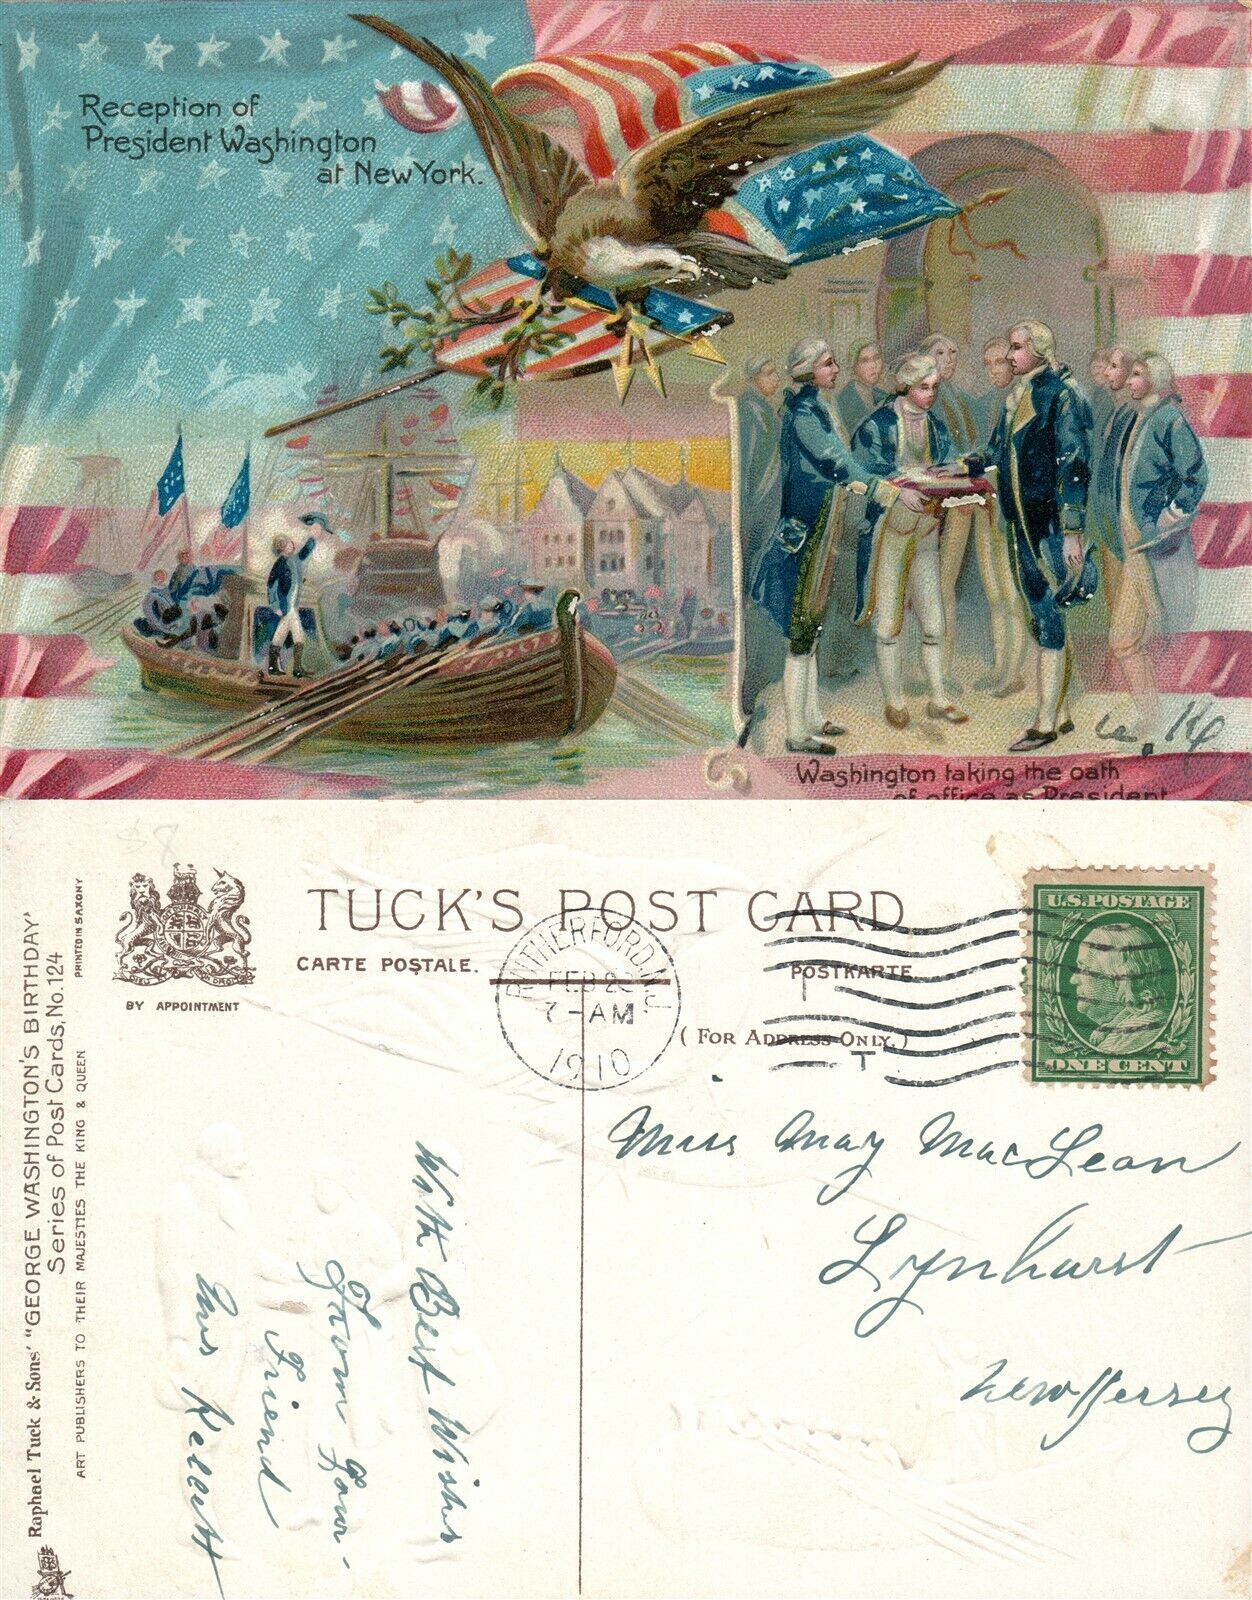 Reception of
President Washington
at New York.
Washington taking the oath
of office as President
TUCK'S POST CARD
CARTE POSTALE.
POSTKARTE.
(FOR ADDRESS ONLY.)
BY APPOINTMENT
RUTHERFORD N.J.
FEB 23
7-AM
1910
U.S. POSTAGE
ONE CENT
Raphael Tuck & Sons' "GEORGE WASHINGTON'S BIRTHDAY"
Series of Post Cards, No. 124
PRINTED IN SAXONY
ART PUBLISHERS TO THEIR MAJESTIES THE KING & QUEEN
Miss May MacLean
Lynhurst
New Jersey
With Best Wishes
From Your
Friend
$8